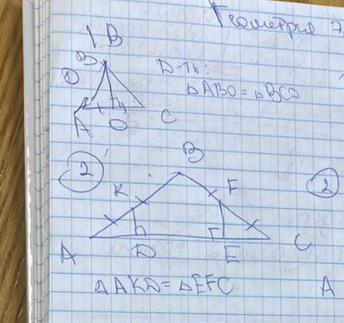 Геометрия 7
1 B
Д-ть:
△ABO = △BCO
A O C
2
B
K F
A D E C
△AKD = △EFC
2
A